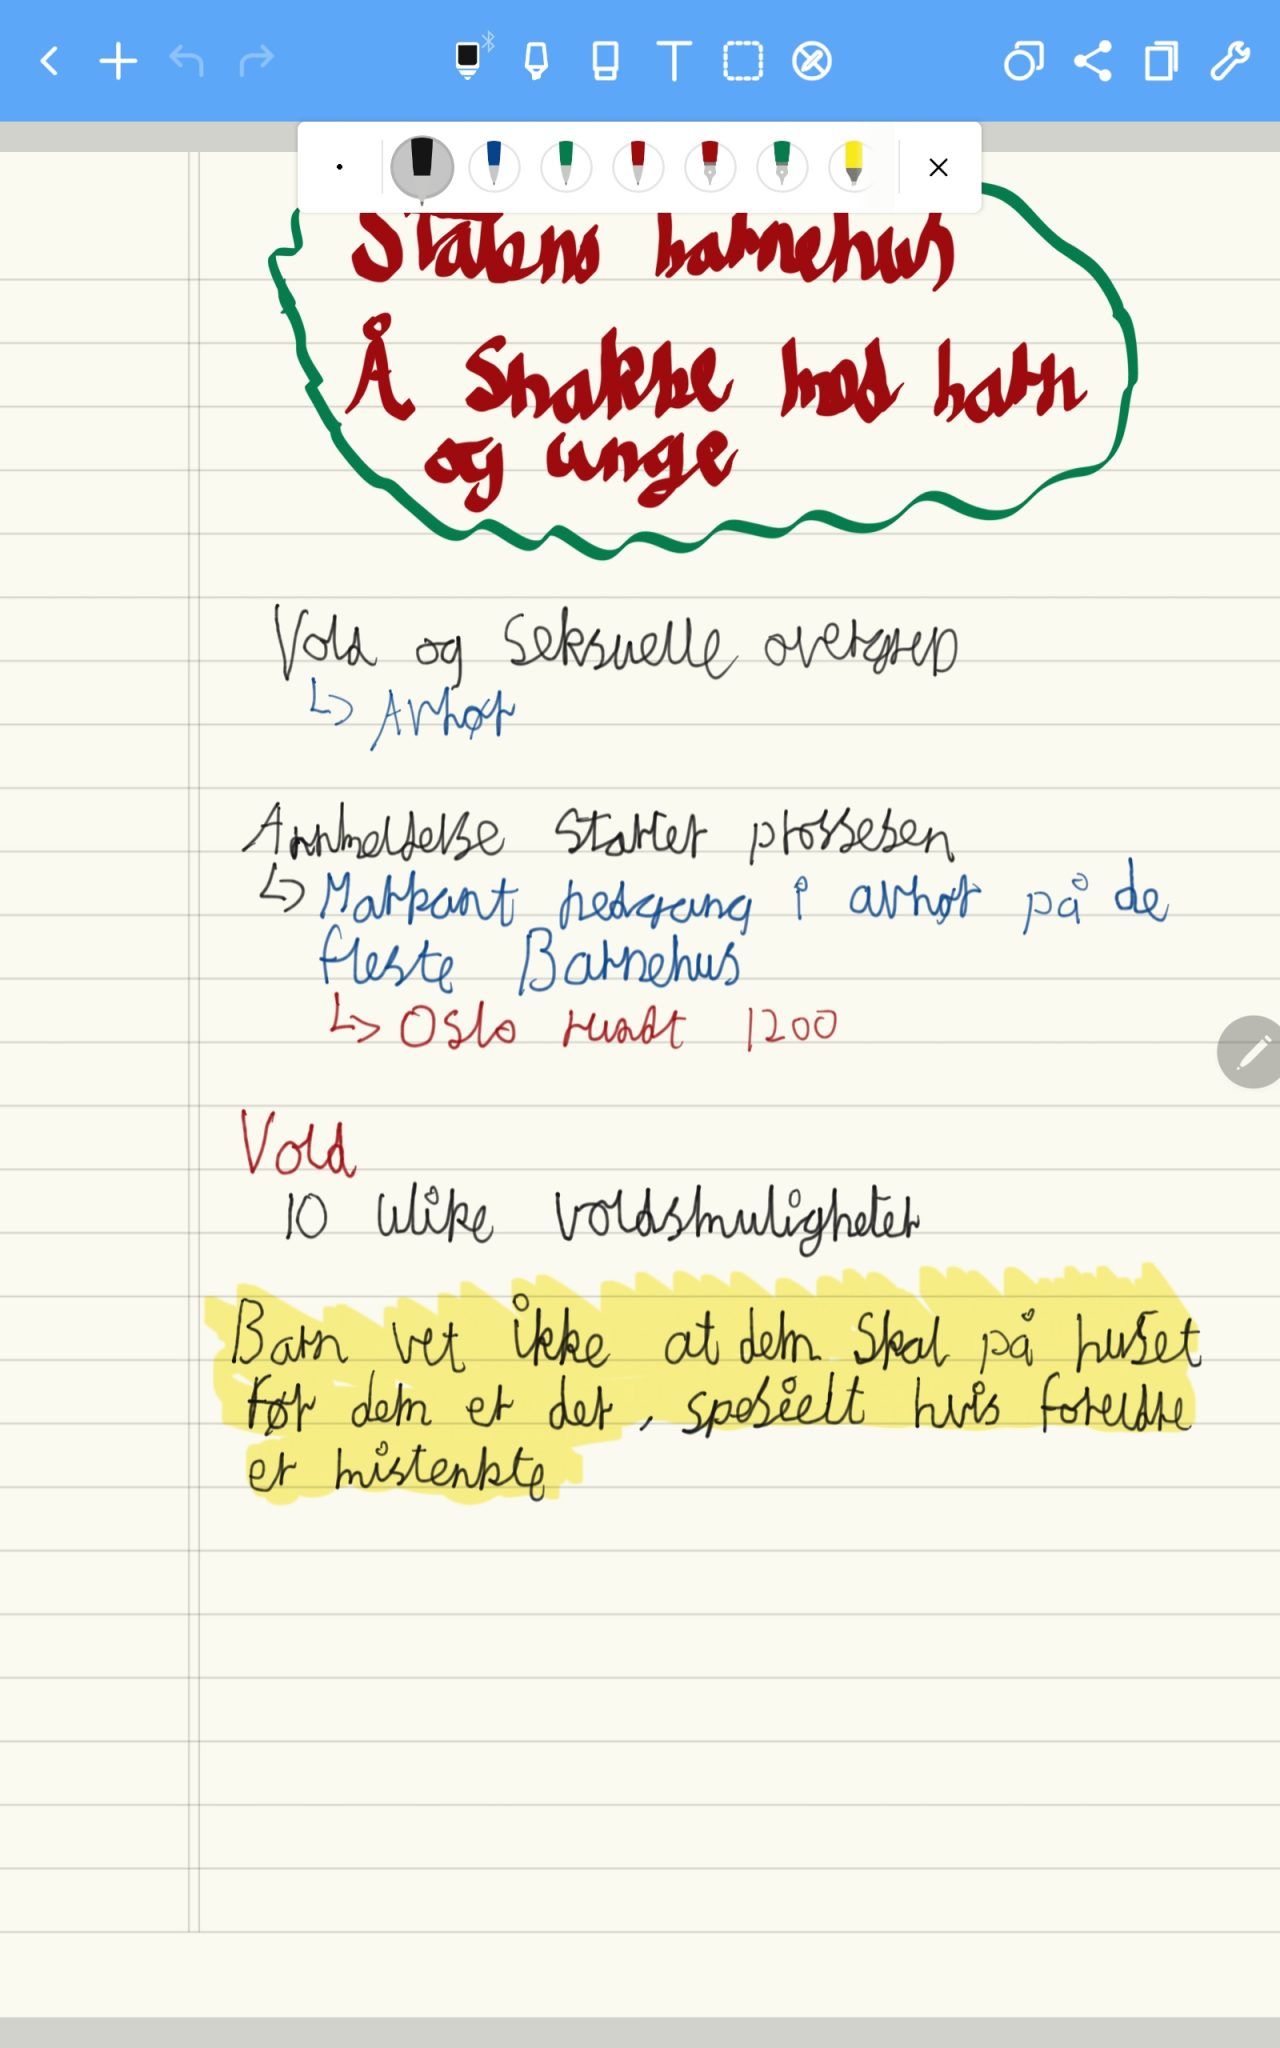 Statens barnehus
Å snakke med barn
og unge
Vold og seksuelle overgrep
↳ Avhør
Annmeldelse starter prossesen
↳ Markant nedgang i avhør på de
fleste Barnehus
↳ Oslo rundt 1200
Vold
10 ulike voldsmuligheter
Barn vet ikke at dem skal på huset
før dem er der, spesielt hvis foreldre
er mistenkte